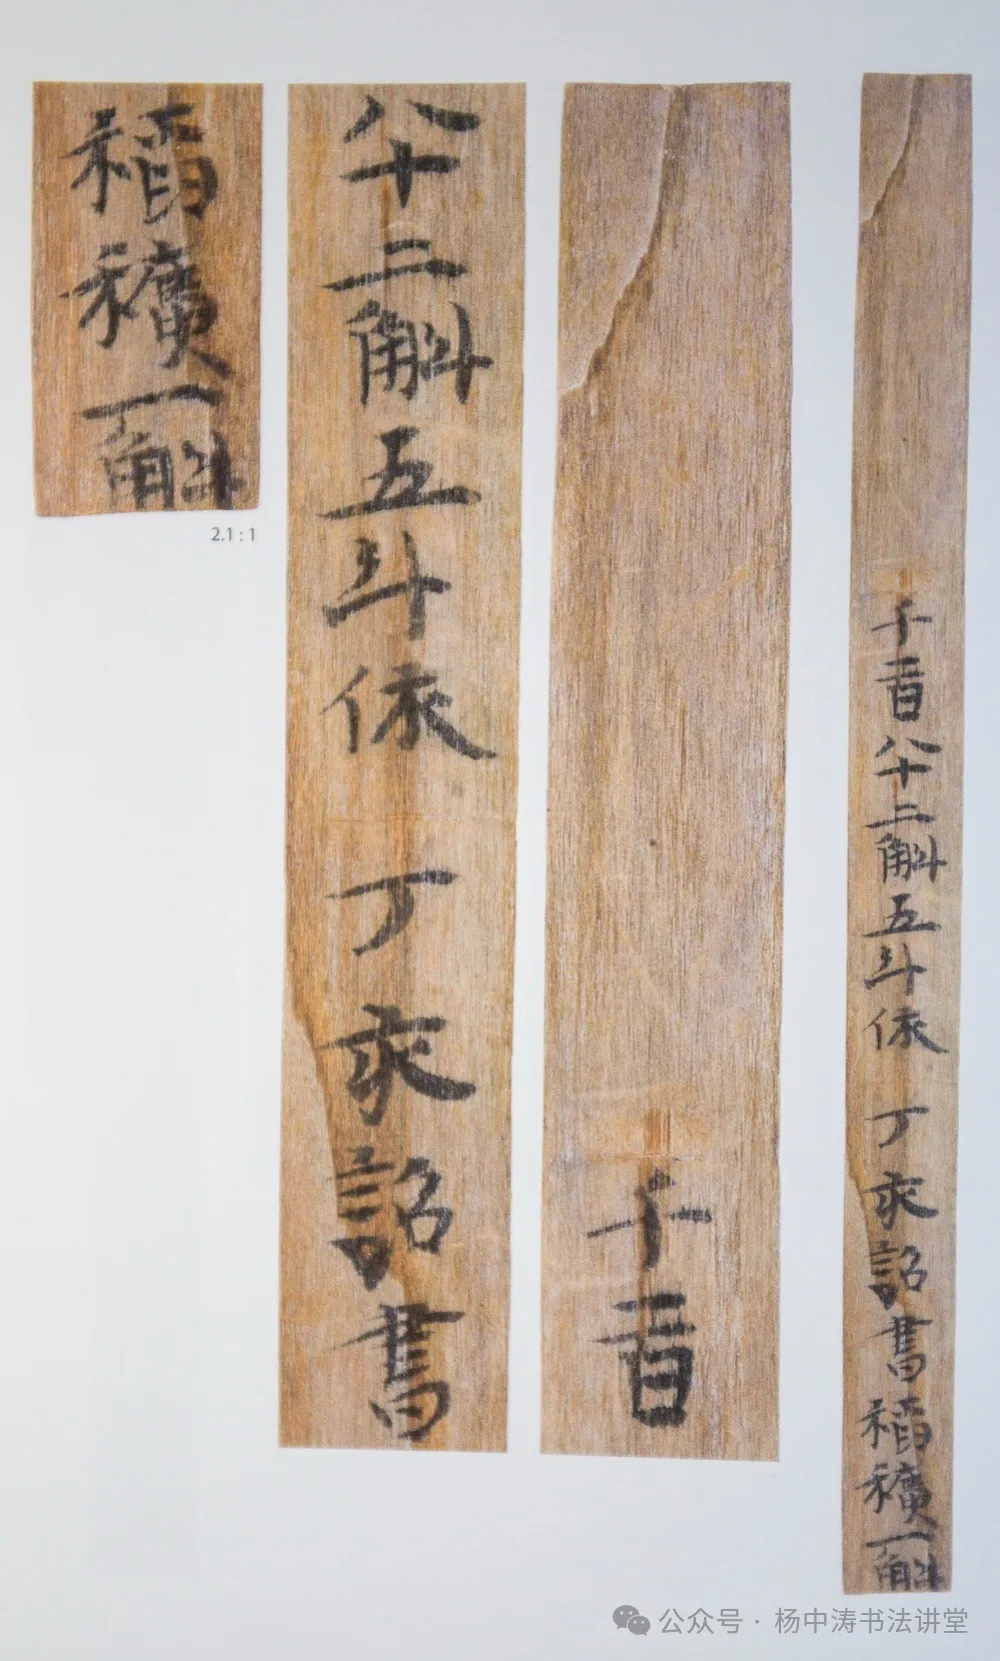 千一百八十二斛五斗依 丁亥詔書稻穬一斛
千一百
八十二斛五斗依 丁亥詔書
稻穬一斛
2.1 : 1
公众号 · 杨中涛书法讲堂